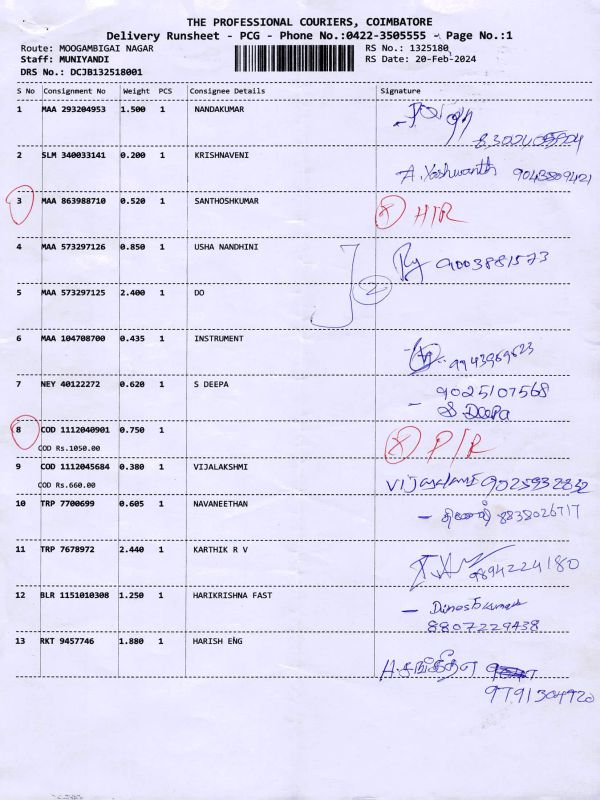 THE PROFESSIONAL COURIERS, COIMBATORE
Delivery Runsheet - PCG - Phone No.:0422-3505555 - Page No.:1
Route: MOOGAMBIGAI NAGAR RS No.: 1325180
Staff: MUNIYANDI RS Date: 20-Feb-2024
DRS No.: DCJB132518001
S No Consignment No Weight PCS Consignee Details Signature
1 MAA 293204953 1.500 1 NANDAKUMAR
2 SLM 340033141 0.200 1 KRISHNAVENI
A. Yashwanth 9043809421
3 MAA 863988710 0.520 1 SANTHOSHKUMAR
4 MAA 573297126 0.850 1 USHA NANDHINI
9003881573
5 MAA 573297125 2.400 1 DO
2
6 MAA 104708700 0.435 1 INSTRUMENT
9943969623
7 NEY 40122272 0.620 1 S DEEPA
9025107568
S Deepa
8 COD 1112040901 0.750 1
COD Rs.1050.00
9 COD 1112045684 0.380 1 VIJALAKSHMI
COD Rs.660.00
9025932832
10 TRP 7700699 0.605 1 NAVANEETHAN
8838026717
11 TRP 7678972 2.440 1 KARTHIK R V
9894224180
12 BLR 1151010308 1.250 1 HARIKRISHNA FAST
Dineshkumar
8807229438
13 RKT 9457746 1.880 1 HARISH ENG
9791304920